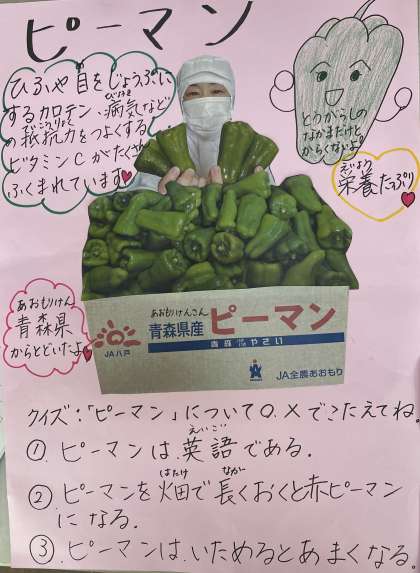 ピーマン
ひふや目をじょうぶに
するカロテン、病気など
びょうき
の抵抗力をつよくする
ていこうりょく
ビタミンCがたくさん
ふくまれています
とうがらしの
なかまだけど
からくないよ。
えいよう
栄養たっぷり
あおもりけん
青森県
からとどいたよ
あおもりけんさん
青森県産 ピーマン
JA八戸
青森 やさい
JA全農あおもり
クイズ:「ピーマン」について○、×でこたえてね。
えいご
① ピーマンは英語である。
はたけ なが
② ピーマンを畑で長くおくと赤ピーマン
になる。
③ ピーマンは、いためるとあまくなる。